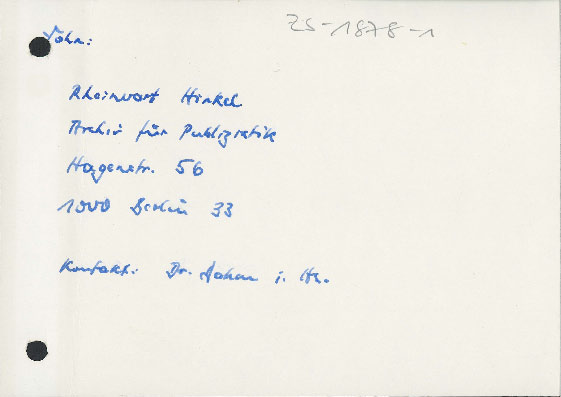 ZS-1878-1
Sohn:
Rheinwart Hinkel
Archiv für Publizistik
Hagenstr. 56
1000 Berlin 33
Kontakt: Dr. i. Hs.